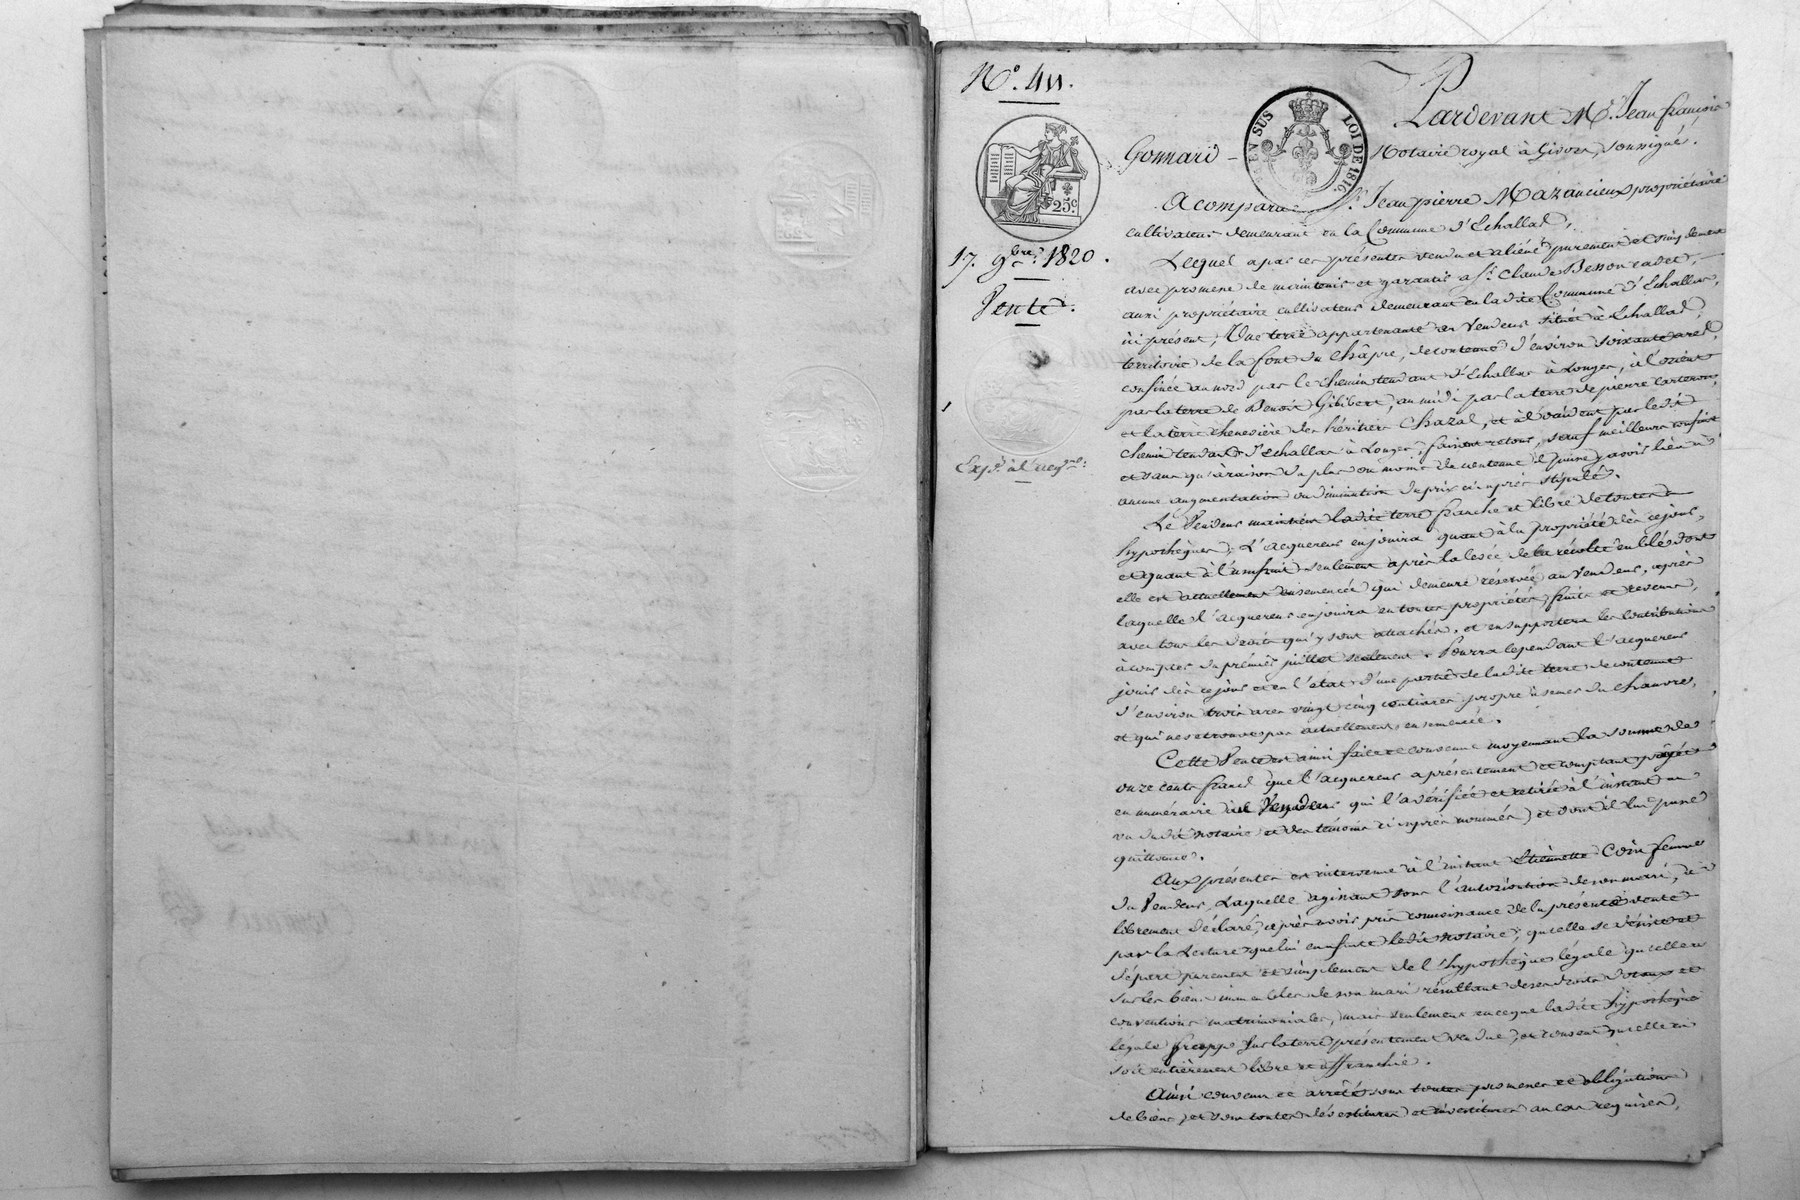 N.° 411.
25c.
EN SUS
LOI DE 1816
17. 9bre. 1820.
Vente.
Pardevant Me. Jean françois
Gonnard Notaire royal à Givors, soussigné.
A comparu Sr. Jean pierre Mazancieux propriétaire
cultivateur demeurant en la Commune d'Echallas,
Lequel a par ces présentes vendu et aliéné purement et simplement
avec promesse de maintenir et garantir a Sr. Claude Besson cadet,
aussi propriétaire cultivateur demeurant en ladite Commune d'Echallas,
ici présent, Une terre appartenante au Vendeur située à Echallas,
territoire de la font du Châpre, de contenue d'environ soixante ares,
confinée au nord par le chemin tendant d'Echallas à Longes, à l'orient
par la terre de Benoit Gilibert, au midi par la terre de pierre
et la terre chenevière des héritiers Chazal, et à l'occident par ledit
chemin tendant d'Echallas à Longes, faisant retour, sauf meilleurs confins
et sans qu'à raison du plus ou moins de contenue il puisse y avoir lieu à
aucune augmentation ou diminution du prix ci-après stipulé.
Le Vendeur maintient ladite terre franche et libre de toutes
hypothèques; L'acquereur en jouira quant à la propriété dès ce jour,
et quant à l'usufruit seulement après la levée de la récolte en blé dont
elle est actuellement ensemencée qui demeure réservée au Vendeur, après
laquelle l'acquereur en jouira en toutes propriétés, fruits et revenus,
avec tous les droits qui y sont attachés, et en supportera les contributions
à compter du premier juillet seulement. Pourra cependant l'acquereur
jouir dès ce jour et en l'état d'une partie de ladite terre de contenue
d'environ trois ares vingt cinq centiares propre à semer du chanvre,
et qui ne se trouve pas actuellement ensemencée.
Cette Vente est ainsi faite et convenue moyennant la somme de
onze cents francs que l'acquereur a présentement et comptant payée
en numéraire au Vendeur qui l'a vérifiée et retirée à l'instant au
vu dudit notaire et des témoins ci après nommés, et dont il lui passe
quittance.
Aux présentes est intervenue à l'instant Etiennette Coin femme
du Vendeur, Laquelle agissant sous l'autorisation de son mari, a
librement déclaré, après avoir pris connoissance de la présente vente
par la Lecture que lui en a fait ledit notaire, qu'elle se désiste et
départ purement et simplement de l'hypothèque légale qu'elle a
sur les biens immeubles de son mari résultant de ses droits dotaux et
conventions matrimoniales, mais seulement en ce que ladite hypothèque
légale frappe sur la terre présentement vendue, et consent qu'elle en
soit entièrement libre et affranchie.
Ainsi convenu et arrêté sous toutes promesses et obligations
de biens, et sous toutes dévestitures et investitures au cas requises,